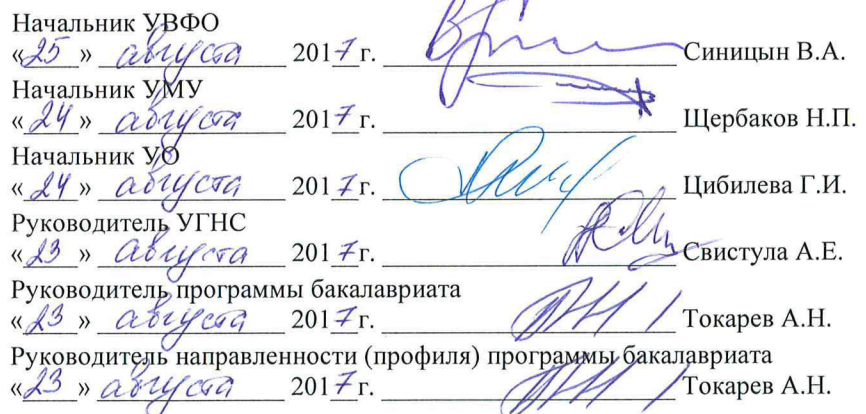 Начальник УВФО
«25» августа 2017 г. Синицын В.А.
Начальник УМУ
«24» августа 2017 г. Щербаков Н.П.
Начальник УО
«24» августа 2017 г. Цибилева Г.И.
Руководитель УГНС
«23» августа 2017 г. Свистула А.Е.
Руководитель программы бакалавриата
«23» августа 2017 г. Токарев А.Н.
Руководитель направленности (профиля) программы бакалавриата
«23» августа 2017 г. Токарев А.Н.